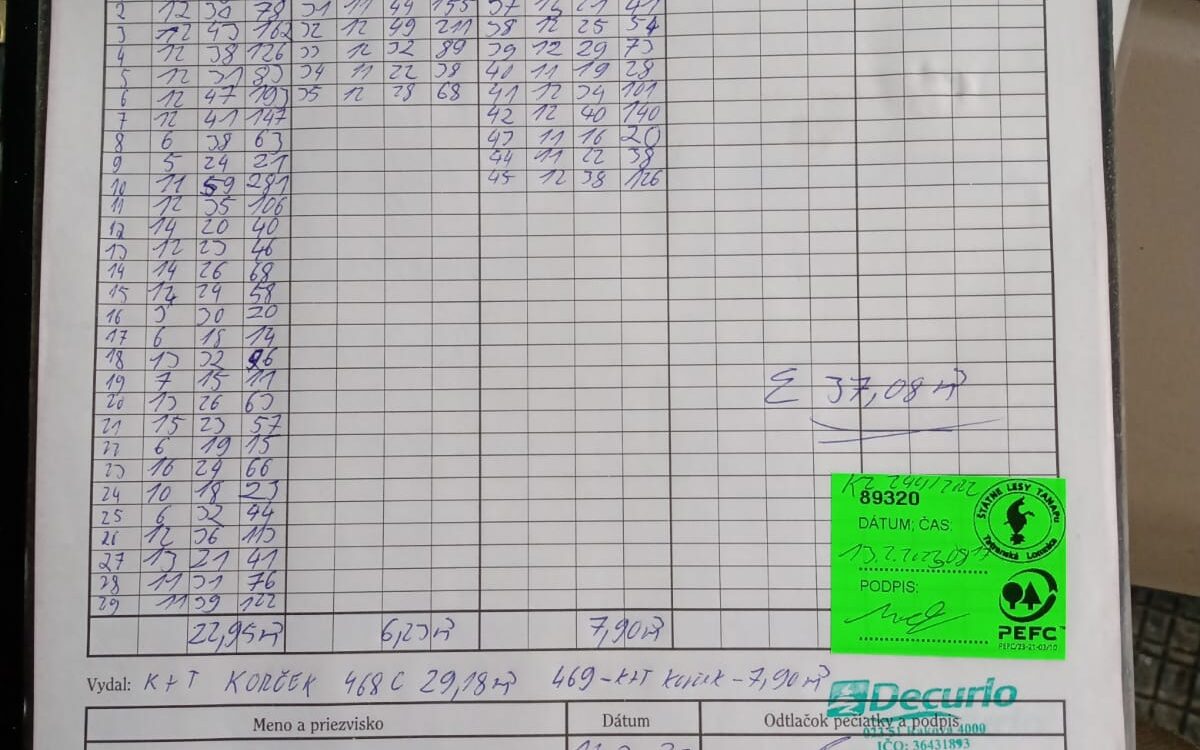 2 12 32 78 31 11 44 155 37 12 21 41
3 12 43 162 32 12 49 211 38 12 25 54
4 12 38 126 33 12 32 89 39 12 29 73
5 12 31 83 34 11 22 38 40 11 19 28
6 12 47 193 35 12 28 68 41 12 34 101
7 12 41 147 42 12 40 140
8 6 38 63 43 11 16 20
9 5 24 21 44 11 22 38
10 11 59 281 45 12 38 126
11 12 35 106
12 14 20 40
13 12 23 46
14 14 26 68
15 14 24 58
16 3 30 20
17 6 18 14
18 13 32 96
19 7 15 11
20 13 26 63
21 15 23 57
22 6 19 15
23 16 24 66
24 10 18 23
25 6 32 44
26 12 36 113
27 13 21 41
28 11 31 76
29 11 39 122
Σ 37,08 m³
22,95 m³ 6,23 m³ 7,90 m³
89320
DÁTUM; ČAS:
PODPIS:
ŠTÁTNE LESY TANAPU
Tatranská Lomnica
PEFC™
PEFC/23-21-03/10
Vydal: K+T KORČEK 468 C 29,18 m³ 469 - K+T - 7,90 m³
Decurio
023 51 Raková 4000
IČO: 36431893
Meno a priezvisko Dátum Odtlačok pečiatky a podpis